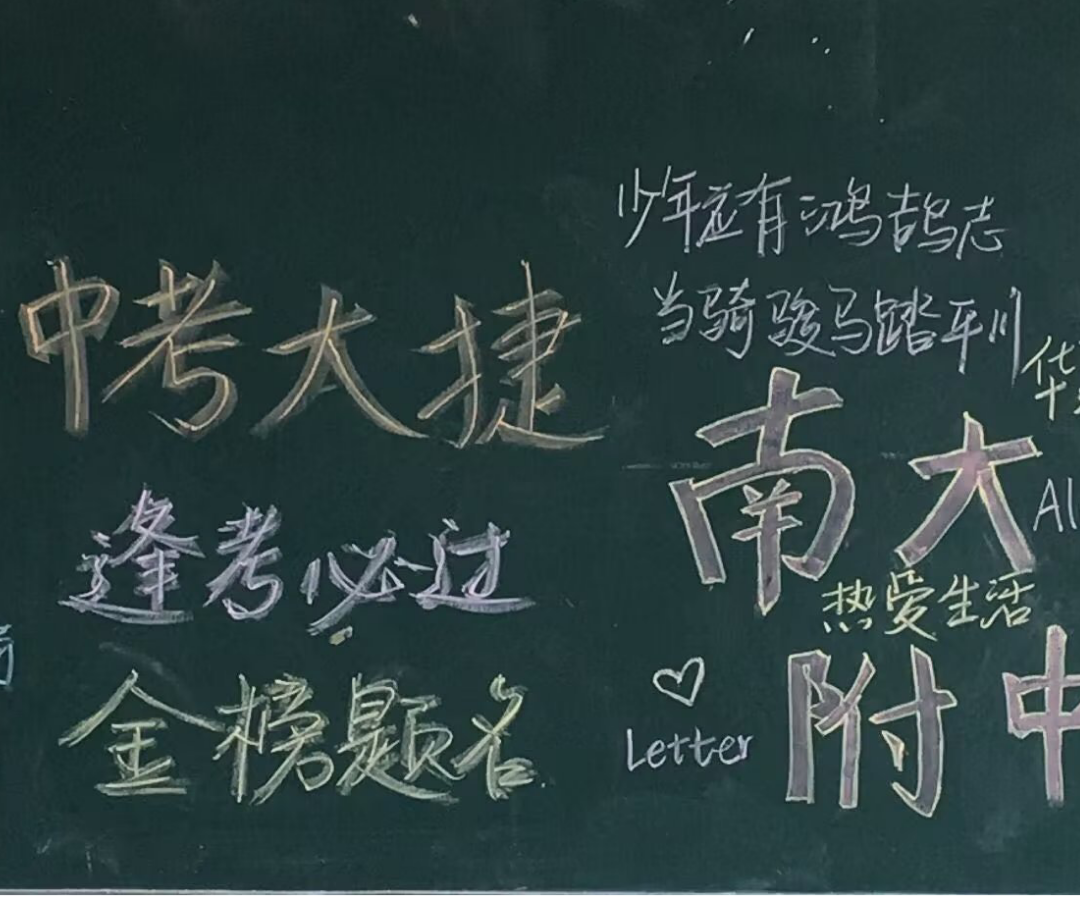 中考大捷
逢考必过
金榜题名
少年应有鸿鹄志
当骑骏马踏平川
南大
热爱生活
附中
Letter